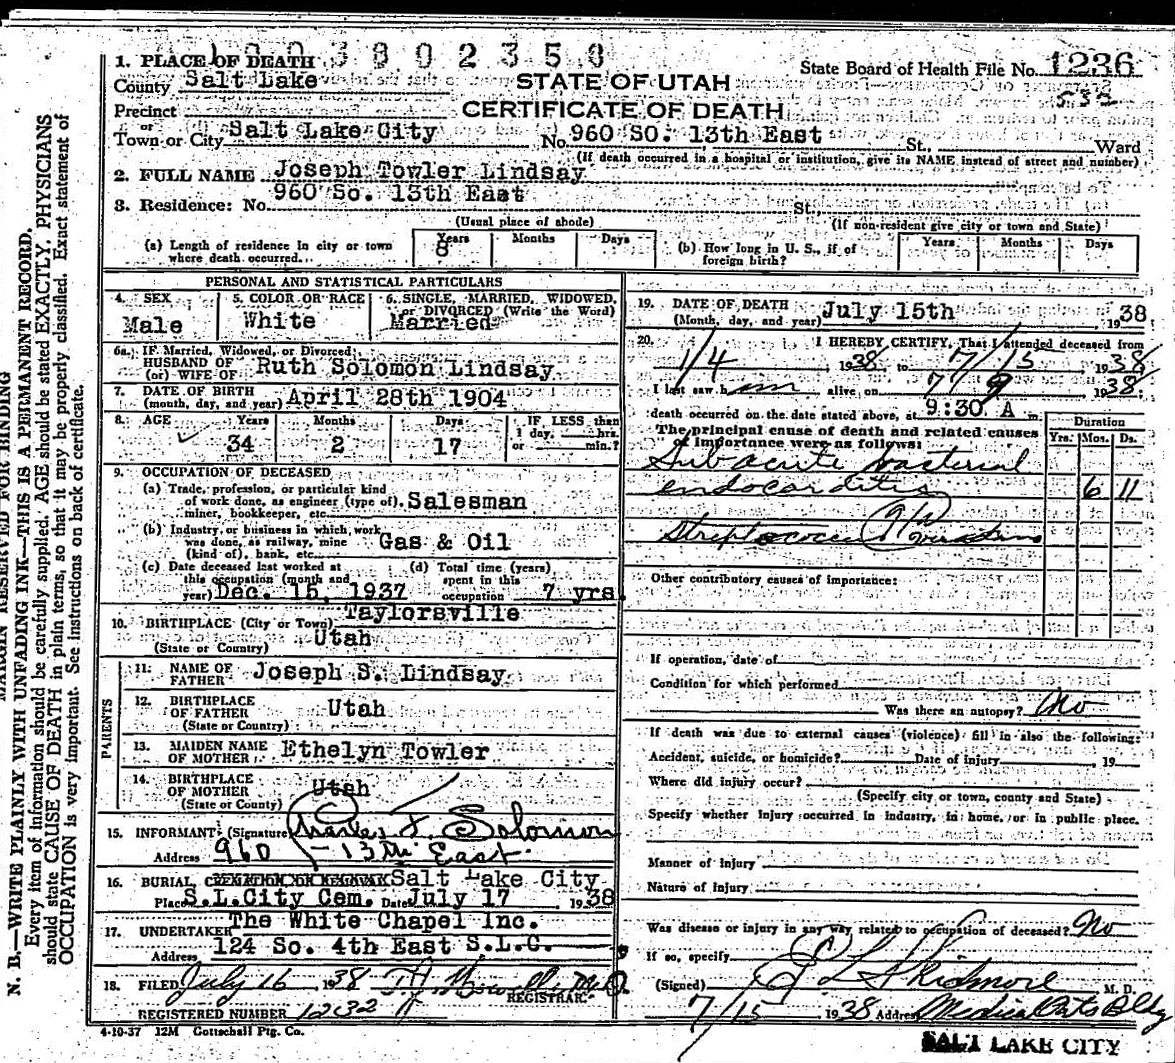 1. PLACE OF DEATH 003802358
County Salt Lake
STATE OF UTAH
State Board of Health File No. 1236
Precinct
CERTIFICATE OF DEATH
or
Town or City Salt Lake City No. 960 SO. 13th East St., Ward
(If death occurred in a hospital or institution, give its NAME instead of street and number)
2. FULL NAME Joseph Towler Lindsay
3. Residence: No. 960 So. 13th East St.,
(Usual place of abode) (If non-resident give city or town and State)
(a) Length of residence in city or town where death occurred... Years 8 Months Days
(b) How long in U. S., if of foreign birth? Years Months Days
PERSONAL AND STATISTICAL PARTICULARS
4. SEX Male
5. COLOR OR RACE White
6. SINGLE, MARRIED, WIDOWED, or DIVORCED (Write the Word) Married
6a. IF Married, Widowed, or Divorced
HUSBAND OF
(or) WIFE OF Ruth Solomon Lindsay
7. DATE OF BIRTH
(month, day, and year) April 28th 1904
8. AGE Years 34 Months 2 Days 17 IF LESS than 1 day, hrs. or min.?
9. OCCUPATION OF DECEASED
(a) Trade, profession, or particular kind
of work done, as engineer (type of), Salesman
miner, bookkeeper, etc.
(b) Industry, or business in which work
was done, as railway, mine Gas & Oil
(kind of), bank, etc.
(c) Date deceased last worked at
this occupation (month and
year) Dec. 15, 1937
(d) Total time (years)
spent in this
occupation 7 yrs.
10. BIRTHPLACE (City or Town) Taylorsville
(State or Country) Utah
PARENTS
11. NAME OF FATHER Joseph S. Lindsay
12. BIRTHPLACE OF FATHER Utah
(State or Country)
13. MAIDEN NAME OF MOTHER Ethelyn Towler
14. BIRTHPLACE OF MOTHER Utah
(State or County)
15. INFORMANT (Signature) Charles F. Solomon
Address 960 - 13th East
16. BURIAL Salt Lake City
Place S.L.City Cem. Date July 17 1938
17. UNDERTAKER The White Chapel Inc.
Address 124 So. 4th East S.L.C.
18. FILED July 16 1938
REGISTRAR
REGISTERED NUMBER 1232
4-10-37 12M Gottschall Ptg. Co.
19. DATE OF DEATH July 15th 1938
(Month, day, and year)
20. I HEREBY CERTIFY, That I attended deceased from
1/4, 1938, to 7/15, 1938
I last saw him alive on 7/9 1938;
death occurred on the date stated above, at 9:30 A m.
The principal cause of death and related causes
of importance were as follows:
Duration
Yrs. Mos. Ds.
Sub acute bacterial
endocarditis 6 11
Streptococci
Other contributory causes of importance:
If operation, date of
Condition for which performed
Was there an autopsy? No
If death was due to external causes (violence) fill in also the following:
Accident, suicide, or homicide? Date of injury, 19
Where did injury occur?
(Specify city or town, county and State)
Specify whether injury occurred in industry, in home, or in public place.
Manner of injury
Nature of Injury
Was disease or injury in any way related to occupation of deceased? No
If so, specify
(Signed) E L Skidmore M. D.
7/15 1938 Address Medical Arts Bldg
SALT LAKE CITY
MARGIN RESERVED FOR BINDING
N. B.—WRITE PLAINLY WITH UNFADING INK—THIS IS A PERMANENT RECORD.
Every item of information should be carefully supplied. AGE should be stated EXACTLY. PHYSICIANS
should state CAUSE OF DEATH in plain terms, so that it may be properly classified. Exact statement of
OCCUPATION is very important. See instructions on back of certificate.